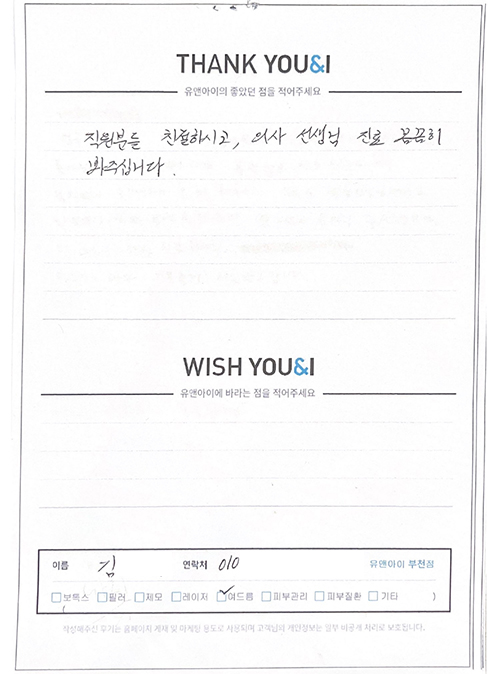 THANK YOU&I
유앤아이의 좋았던 점을 적어주세요
직원분들 친절하시고, 의사 선생님 진료 꼼꼼히
봐주십니다.
WISH YOU&I
유앤아이에 바라는 점을 적어주세요
이름 김 연락처 010 유앤아이 부천점
보톡스 필러 제모 레이저 여드름 피부관리 피부질환 기타 )
(
작성해주신 후기는 홈페이지 게재 및 마케팅 용도로 사용되며 고객님의 개인정보는 일부 비공개 처리로 보호됩니다.